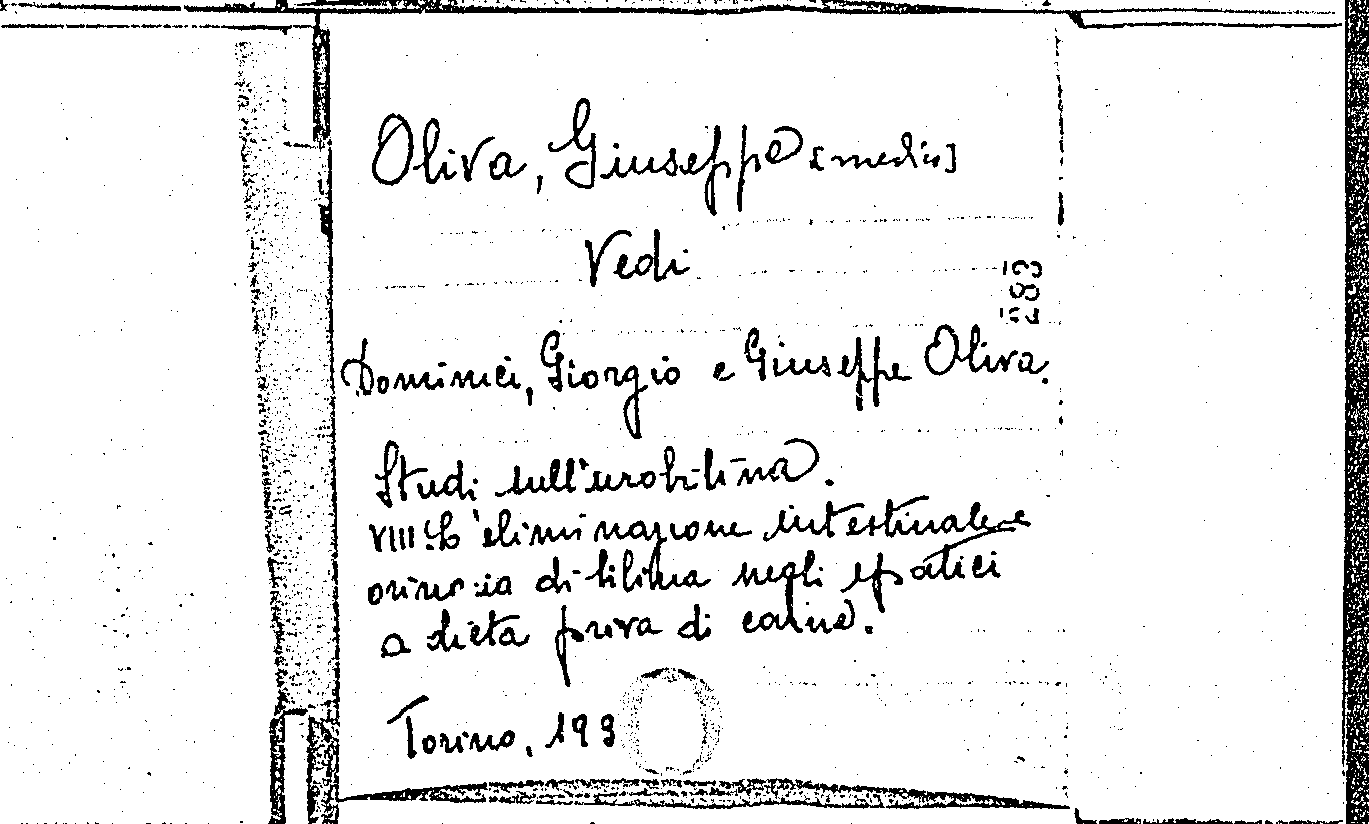 Oliva, Giuseppe [medico]
Vedi
283
Dominici, Giorgio e Giuseppe Oliva.
Studi sull'urobilina.
VIII: L'eliminazione intestinale e
orinaria di bilina negli epatici
a dieta priva di carne.
Torino, 193